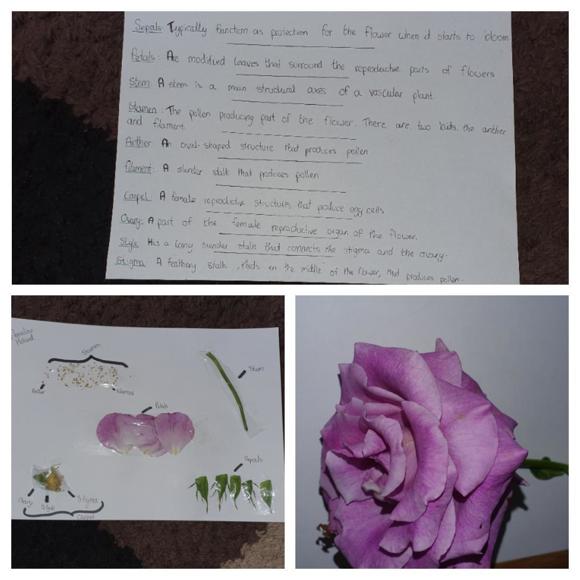 Sepals: Typically function as protection for the flower when it starts to bloom
Petals: Are modified leaves that surround the reproductive parts of flowers
Stem: A stem is a main structural axes of a vascular plant
Stamen: The pollen producing part of the flower. There are two parts, the anther
and filament.
Anther: An oval-shaped structure that produces pollen
filament: A slender stalk that produces pollen
Carpel: A female reproductive structure that produce egg cells
Ovary: A part of the female reproductive organ of the flower.
Style: Has a long slender stalk that connects the stigma and the ovary.
Stigma: A feathery stalk, in the middle of the flower, that produces pollen.
Stamen
Stem
Petals
Sepals
Ovary
Style
Stigma
Carpel